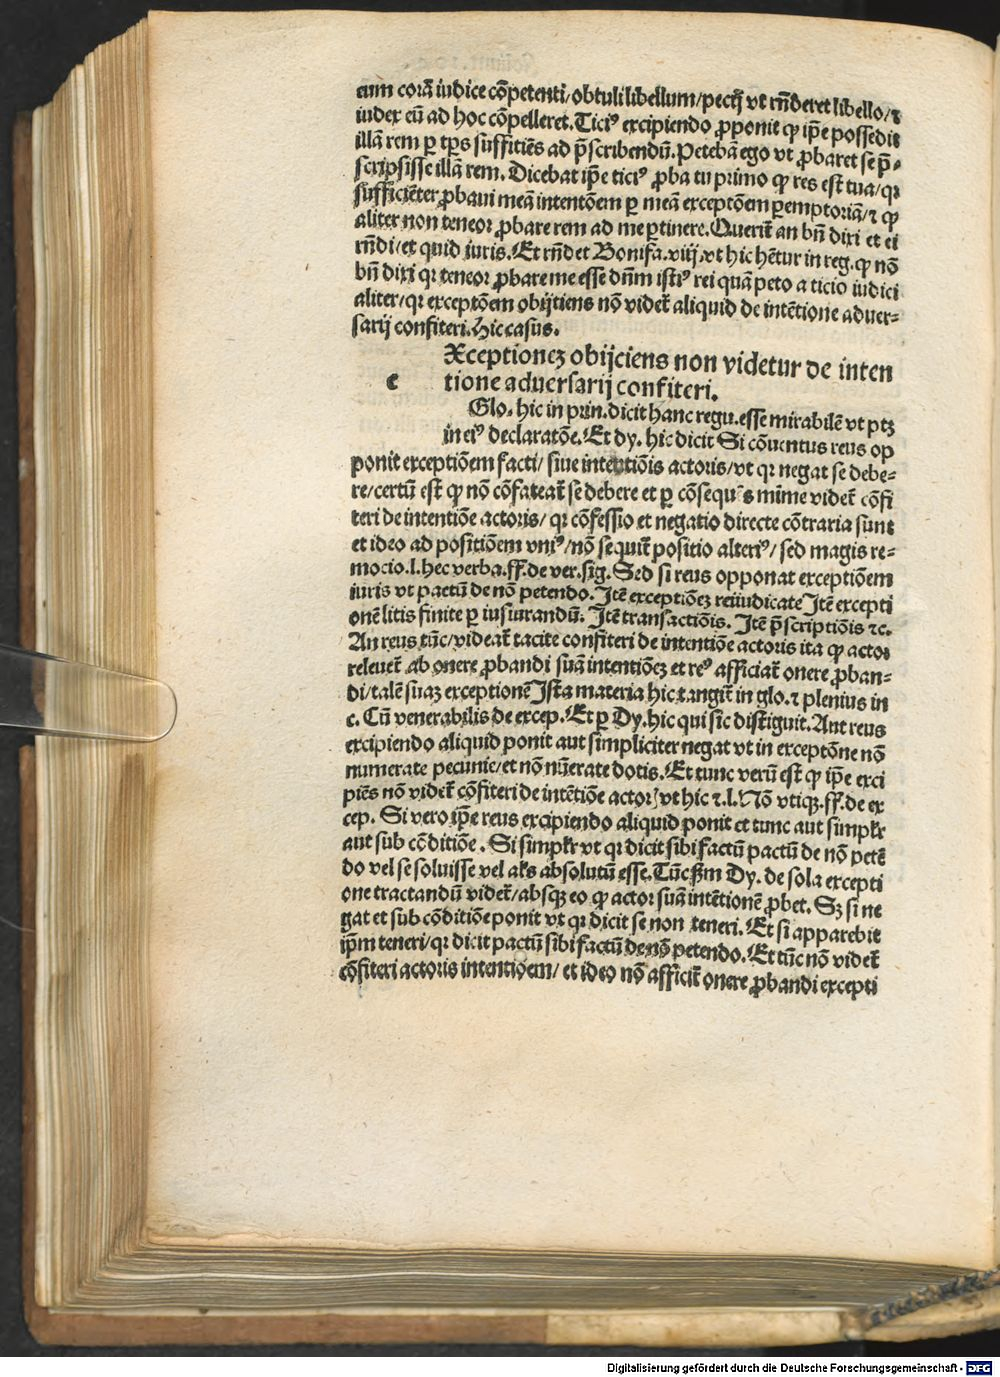 eum corā iudice cōpetenti/obtuli libellum/peciꝗ vt rn̄deret libello/⁊
iudex eū ad hoc cōpelleret. Ticiꝰ excipiendo ꝓponit ꝙ ip̄e possedit
illā rem ꝑ tp̄s suffitiēs ad p̄scribendū. Petebā ego vt ꝓbaret se p̄-
scripsisse illā rem. Dicebat ip̄e ticiꝰ ꝓba tu primo ꝙ res est tua/qꝛ
sufficiēter ꝓbaui meā intentōem ꝑ meā exceptōem ꝑemptoriā/⁊ ꝙ
aliter non teneor ꝓbare rem ad me ꝑtinere. Querit̄ an bn̄ dixi et ei
rn̄di/et quid iuris. Et rn̄det Bonifa. viij. vt hic hētur in reg. ꝙ nō
bn̄ dixi qꝛ teneor ꝓbare me esse dn̄m istiꝰ rei quā peto a ticio iudici
aliter/qꝛ exceptōem obijtiens nō videt̄ aliquid de intētione aduer-
sarij confiteri. Hic casus.
Xceptionez obijciens non videtur de inten
e tione aduersarij confiteri.
Glo. hic in prin. dicit hanc regu. esse mirabilē vt ptꝫ
in eiꝰ declaratōe. Et dy. hic dicit Si cōuentus reus op
ponit exceptiōem facti/siue intētiōis actoris/vt qꝛ negat se debe-
re/certū est ꝙ nō cōfateat̄ se debere et ꝑ cōsequēs mīme videt̄ cōfi
teri de intentiōe actoris/qꝛ cōfessio et negatio directe cōtraria sunt
et ideo ad positiōem vniꝰ/nō sequit̄ positio alteriꝰ/sed magis re-
mocio. l. hec verba. ff. de ver. sig. Sed si reus opponat exceptiōem
iuris vt pactū de nō petendo. Itē exceptiōeꝫ reiiudicate Itē excepti
onē litis finite ꝑ iusiurandū. Itē transactiōis. Itē p̄scriptiōis ⁊c.
An reus tūc/videat̄ tacite confiteri de intentiōe actoris ita ꝙ actor
releuet̄ ab onere ꝓbandi suā intentiōeꝫ et reꝰ afficiat̄ onere ꝓban-
di/talē suaꝫ exceptionē Ista materia hic tangit̄ in glo. ⁊ plenius in
c. Cū venerabilis de excep. Et ꝑ Dy. hic qui sic distīguit. Aut reus
excipiendo aliquid ponit aut simpliciter negat vt in exceptōne nō
numerate pecunie/et nō nūerate dotis. Et tunc verū est ꝙ ip̄e exci
piēs nō videt̄ cōfiteri de intētiōe actorꝭ vt hic ⁊. l. Nō vtiqꝫ. ff. de ex
cep. Si vero ip̄e reus excipiendo aliquid ponit et tunc aut simplr̄
aut sub cōditiōe. Si simplr̄ vt qꝛ dicit sibi factū pactū de nō petē
do vel se soluisse vel als absolutū esse. Tūc ßm Dy. de sola excepti
one tractandū videt̄/absqꝫ eo ꝙ actor suā intētionē ꝓbet. Sꝫ si ne
gat et sub cōditiōe ponit vt qꝛ dicit se non teneri. Et si apparebit
ip̄m teneri/qꝛ dicit pactū sibi factū de nō petendo. Et tūc nō videt̄
cōfiteri actoris intentiōem/et ideo nō afficit̄ onere ꝓbandi excepti
Digitalisierung gefördert durch die Deutsche Forschungsgemeinschaft - DFG